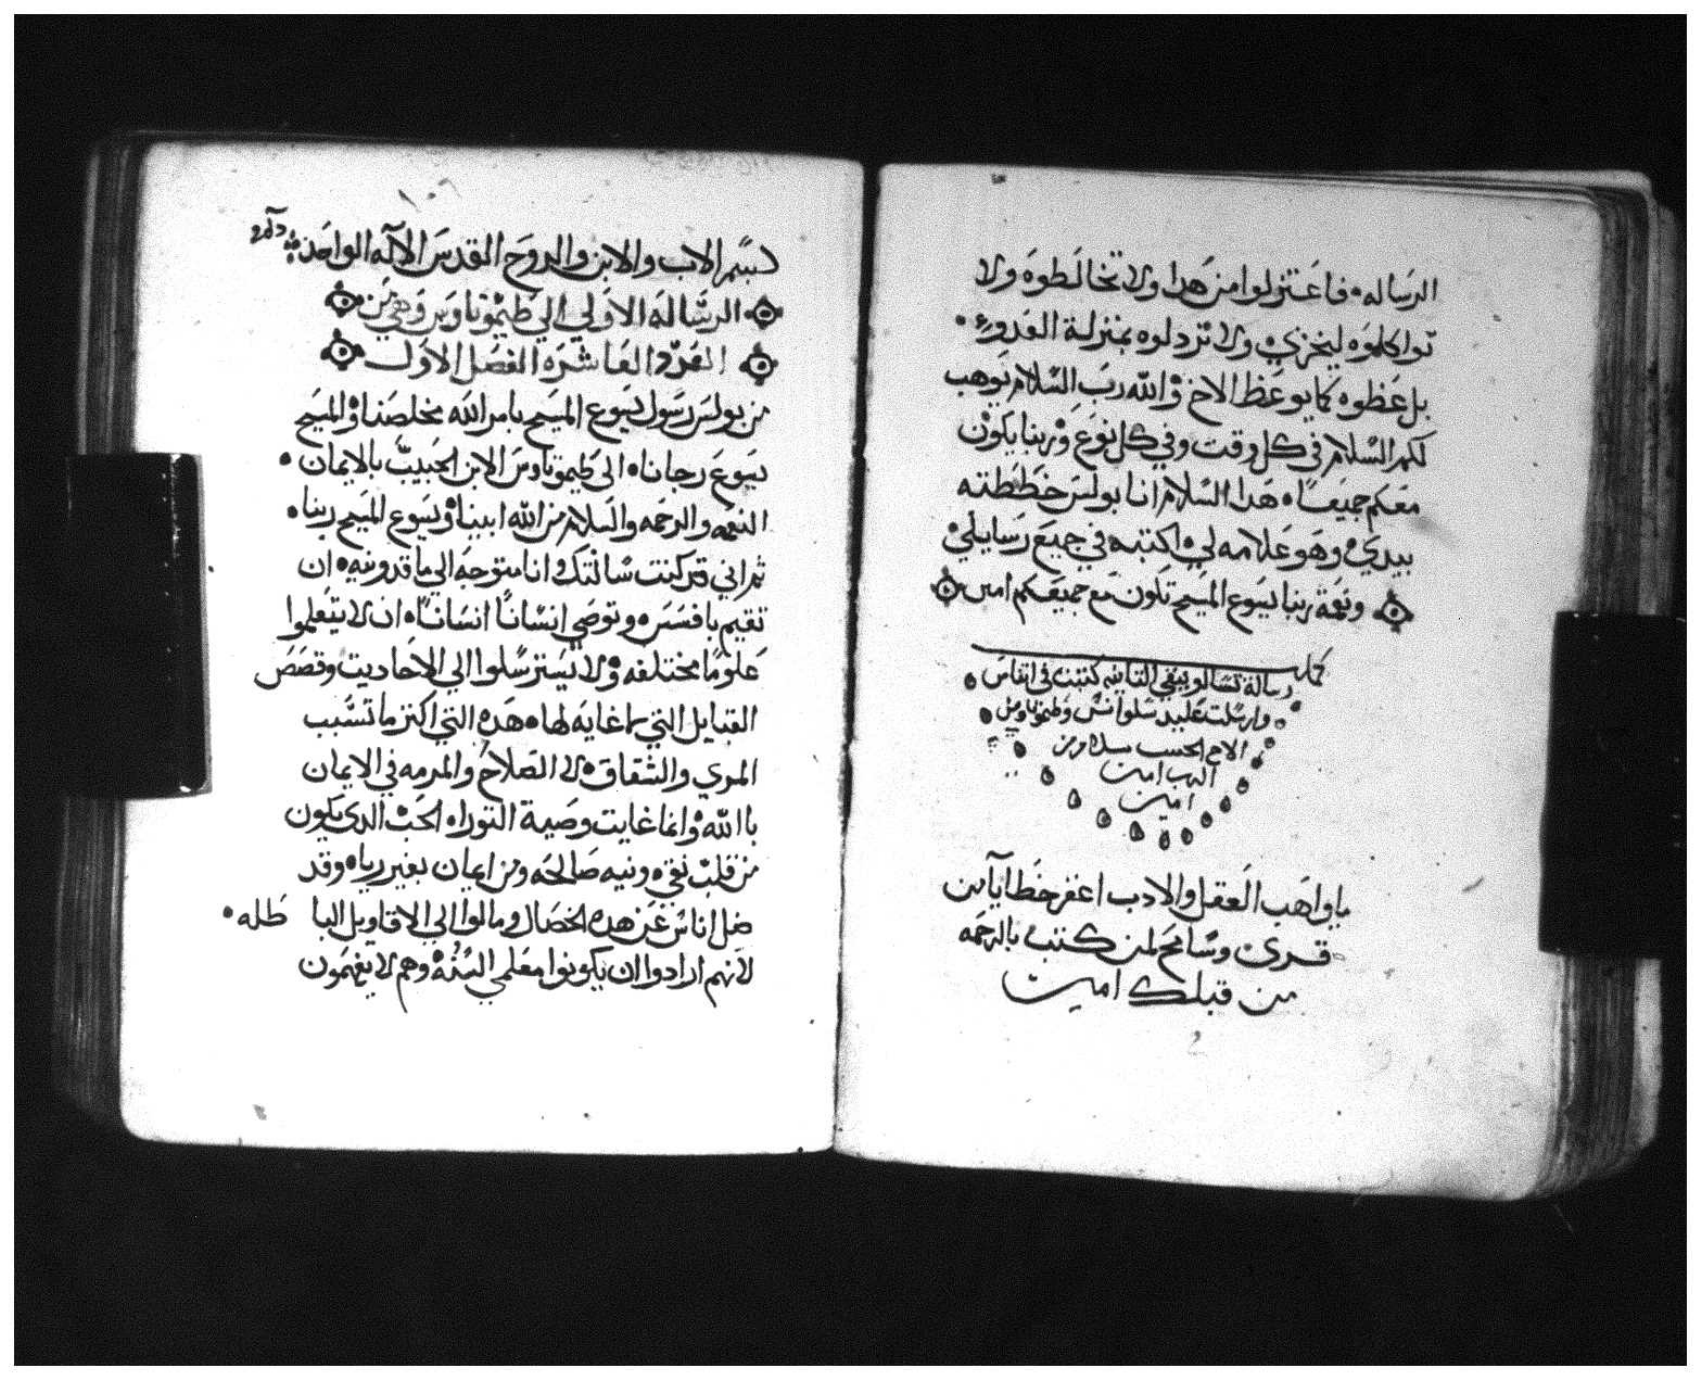 الرساله فاعتزلوا من هدا ولا تخالطوه ولا
تواكلوه ليخزي ولا تزدلوه بمنزلة العدو
بل عظوه كما يوعظ الاخ والله رب السلام يوهب
لكم السلام في كل وقت وفي كل نوع وربنا يكون
معكم جميعا هدا السلام انا بولس خططته
بيدي وهو علامه لي اكتبه في جميع رسايلي
ونعمة ربنا يسوع المسيح تكون مع جميعكم امين
كملت
رسالة تسالونيقي التانيه كتبت في اتناس
وارسلت علييد سلوانس وطيموتاوس
الاخ الحبيب بسلام من
الرب امين
امين
ياواهب العقل والادب اغفر خطايا من
قرى وسامح لمن كتب بالرحمه
من قبلك امين
بسم الاب والابن والروح القدس الآله الواحد
الرساله الاولي الي طيموتاوس وهي من
العدد العاشره الفصل الاول
من بولس رسول يسوع المسيح بامر الله مخلصنا والمسيح
يسوع رجانا الى طيموتاوس الابن الحبيب بالايمان
النعمه والرحمه والسلام من الله ابينا ويسوع المسيح ربنا
ثم اني قد كنت سالتك وانا متوجه الي ماقدونيه ان
تقيم بافسس وتوصي انسانا انسانا ان لا يتعلموا
علوما مختلفه ولا يسترسلوا الي الاحاديت وقصص
القبايل التي لا غايه لها هده التي اكتر ما تسبب
المري والشقاق لا الصلاح والمرمه في الايمان
با الله وانما غايت وصية التوراه الحب الدي يكون
من قلب نقي ونيه صالحه ومن ايمان بغير رياه وقد
ضل اناس عن هده الخصال ومالوا الي الاقاويل البا طله
لانهم ارادوا ان يكونوا معلمي السنه وهم لا يفهمون